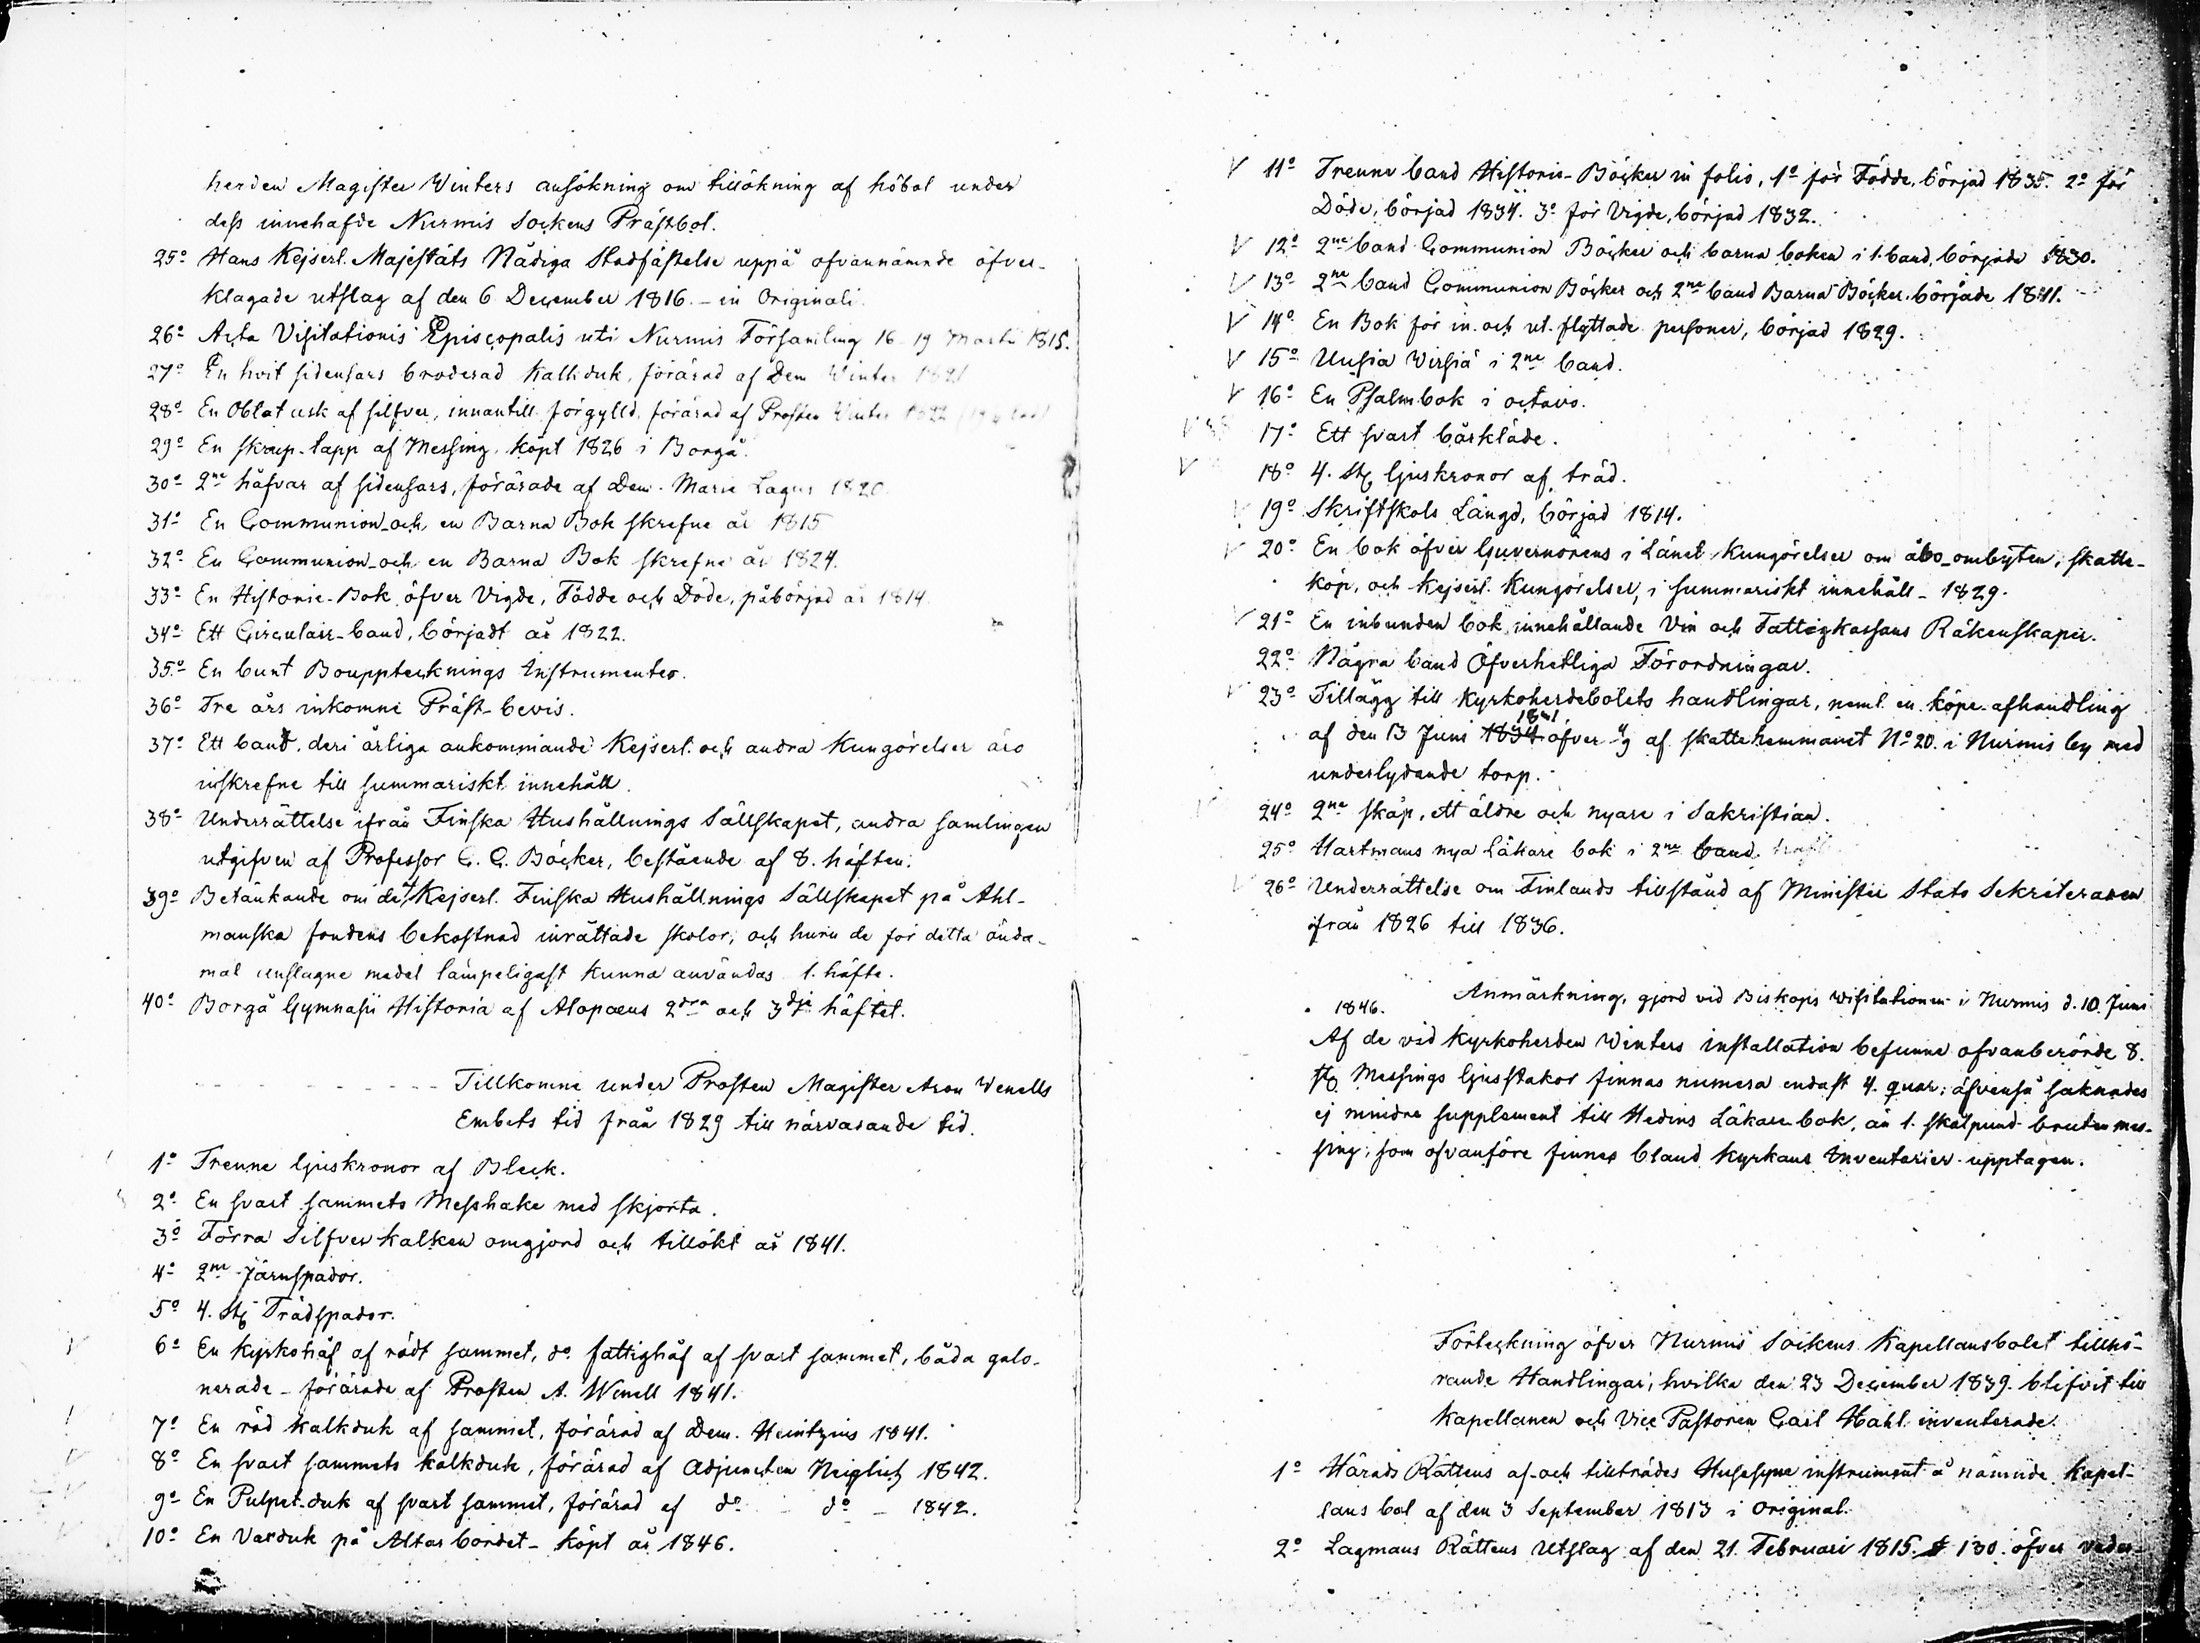 herden Magister Winters ansökning om tillökning af höbol under
dess innehafde Nurmis Sockens Prästbol.
25o Hans Kejserl. Majestäts Nådiga Stadfästelse uppå ofvannämnde öfver-
klagade utslag af den 6 December 1816. – in Originali.
26o Acta Visitationis Episcopalis uti Nurmis Församling 16-19 Martii 1815.
27o En hvit sidensars broderad Kalkduk, förärad af Dem Winter 1821
28o En Oblat ask af silfver, innantill förgylld, förärad af Prosten Winter 1822
29o En skrap-lapp af Messing, köpt 1826 i Borgå.
30o 2ne håfvar af sidensars, förärade af Dem. Marie Lagus 1820.
31o En Communion- och en Barna Bok skrefne år 1815
32o En Communion- och en Barna Bok skrefne år 1824.
33o En Historie-Bok öfver Vigde, Födde och Döde, påbörjad år 1814.
34o Ett Circulair-band, börjadt år 1822.
35o En bunt Boupptecknings Instrumenter.
36o Tre års inkomne Präst-bevis.
37o Ett band, deri årliga ankommande Kejserl. och andra Kungörelser äro
inskrefne till summariskt innehåll.
38o Underrättelse ifrån Finska Hushållnings Sällskapet, andra samlingen
utgifven af Professor C. C. Böcker, bestående af 8. häften.
39o Betänkande om de, af Kejserl. Finska Hushållnings Sällskapet på Ahl-
manska fondens bekostnad inrättade skolor, och huru de för detta ända-
mål anslagne medel lämpeligast kunna användas 1. häfte.
40o Borgå Gymnasii Historia af Alopæus 2dra och 3dje häftet.
Tillkomne under Prosten Magister Aron Wenells
Embets tid från 1829 till närvarande tid.
1o Trenne ljuskronor af Bleck.
2o En svart sammets Messhake med skjorta.
3o Förra Silfver kalken omgjord och tillökt år 1841.
4o 2ne Järnspador.
5o 4. St. Trädspador.
6o En Kyrkohåf af rödt sammet, do fattighåf af svart sammet, båda galo-
nerade – förärade af Prosten A. Wenell 1841.
7o En röd kalkduk af sammet, förärad af Dem. Heintzius 1841.
8o En svart sammets kalkduk, förärad af Adjuncten Neiglich 1842.
9o En Pulpet-duk af svart sammet, förärad af do – do – 1842.
10o En Vaxduk på Altar bordet – köpt år 1846.
V 11o Trenne band Historie-Böcker in folio, 1o för Födde, börjad 1835. 2o för
Döde, börjad 1834. 3o för Vigde, börjad 1832.
V 12o 2ne band Communion Böcker och barna boken i 1. band, började 1830.
V 13o 2ne band Communion Böcker och 2ne band Barna Böcker, började 1841.
V 14o En Bok för in- och ut-flyttade personer, börjad 1829.
V 15o Uusia Wirsiä i 2ne band.
V 16o En Psalmbok i octavo.
V 17o Ett svart bårkläde.
V 18o 4. St. ljuskronor af träd.
V 19o Skriftskols Längd, börjad 1814.
V 20o En bok öfver Guvernörens i Länet Kungörelser om åbo-ombyten, skatte-
köp, och Kejserl. Kungörelser, i summariskt innehåll – 1829.
V 21o En inbunden bok innehållande Vin och Fattigkassans Räkenskaper.
22o Några band Öfverhetliga Förordningar.
V 23o Tillägg till Kyrkoherdebolets handlingar, neml. en köpe-afhandling
1841
af den 13 Juni 1834 öfver af skattehemmanet No 20. i Nurmis by med
underlydande torp.
24o 2ne skåp, ett äldre och nyare i Sakristian.
25o Hartmans nya Läkare bok i 2ne band.
V 26o Underrättelse om Finlands tillstånd af Minister Stats Sekreteraren
ifrån 1826 till 1836.
Anmärkning, gjord vid Biskops visitationen i Nurmis d. 10. Juni
1846.
Af de vid Kyrkoherden Winters installation befunne ofvanberörde 8.
st. Messings ljusstakor finnas numera endast 4. qvar; äfvenså saknades
ej mindre supplement till Hedins Läkare bok, än 1. skålpund bruten mes-
sing; som ofvanföre finnes bland Kyrkans Inventarier upptagen.
Förteckning öfver Nurmis Sockens Kapellansbolet tillhö-
rande Handlingar, hvilka den 23 December 1839. blifvit till
Kapellanen och Vice Pastoren Carl Hahl inventerade.
1o Härads Rättens af- och tillträdes Husesyne instrument å nämnde Kapel-
lans bol af den 3 September 1813 i Original.
2o Lagmans Rättens Utslag af den 21. Februari 1815. § 130. öfver veder-